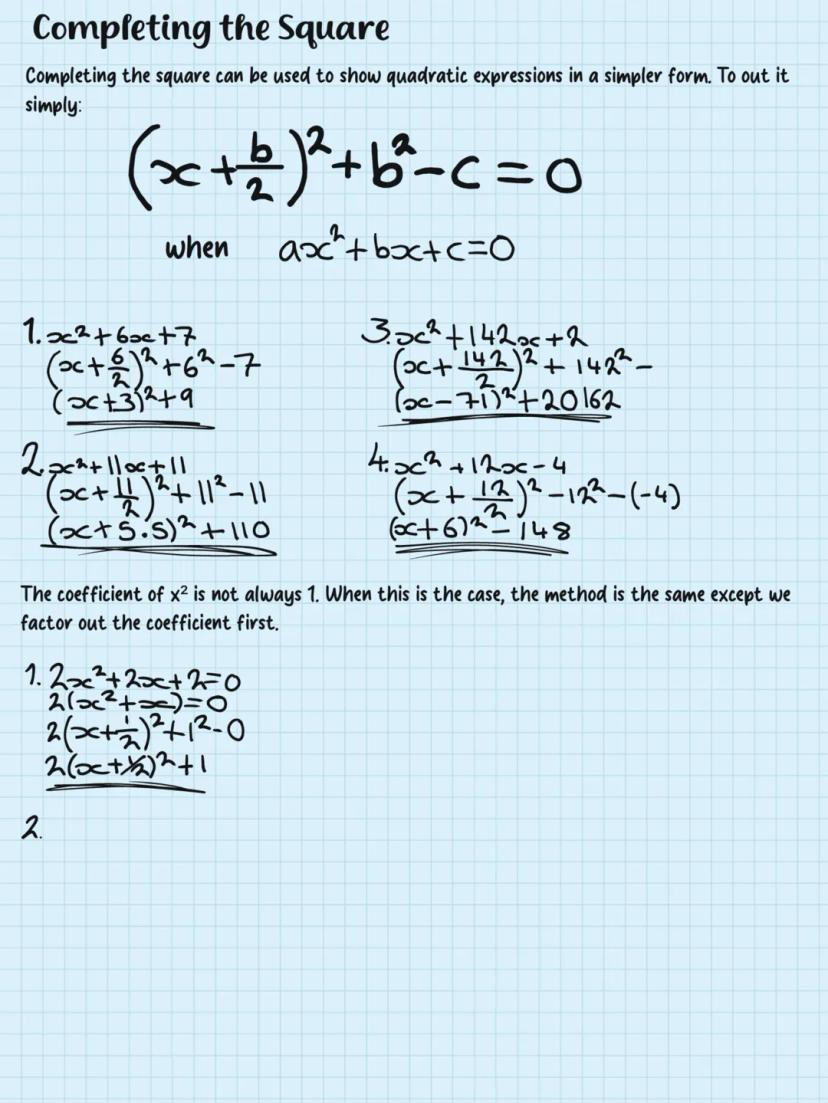 Completing the Square
Completing the square can be used to show quadratic expressions in a simpler form. To out it
simply:
(x + b/2)² + b² - c = 0
when ax² + bx + c = 0
1. x² + 6x + 7
(x + 6/2)² + 6² - 7
(x + 3)² + 9
2. x² + 11x + 11
(x + 11/2)² + 11² - 11
(x + 5.5)² + 110
3. x² + 142x + 2
(x + 142/2)² + 142² -
(x - 71)² + 20162
4. x² + 12x - 4
(x + 12/2)² - 12² - (-4)
(x + 6)² - 148
The coefficient of x² is not always 1. When this is the case, the method is the same except we
factor out the coefficient first.
1. 2x² + 2x + 2 = 0
2(x² + x) = 0
2(x + 1/2)² + 1² - 0
2(x + 1/2)² + 1
2.